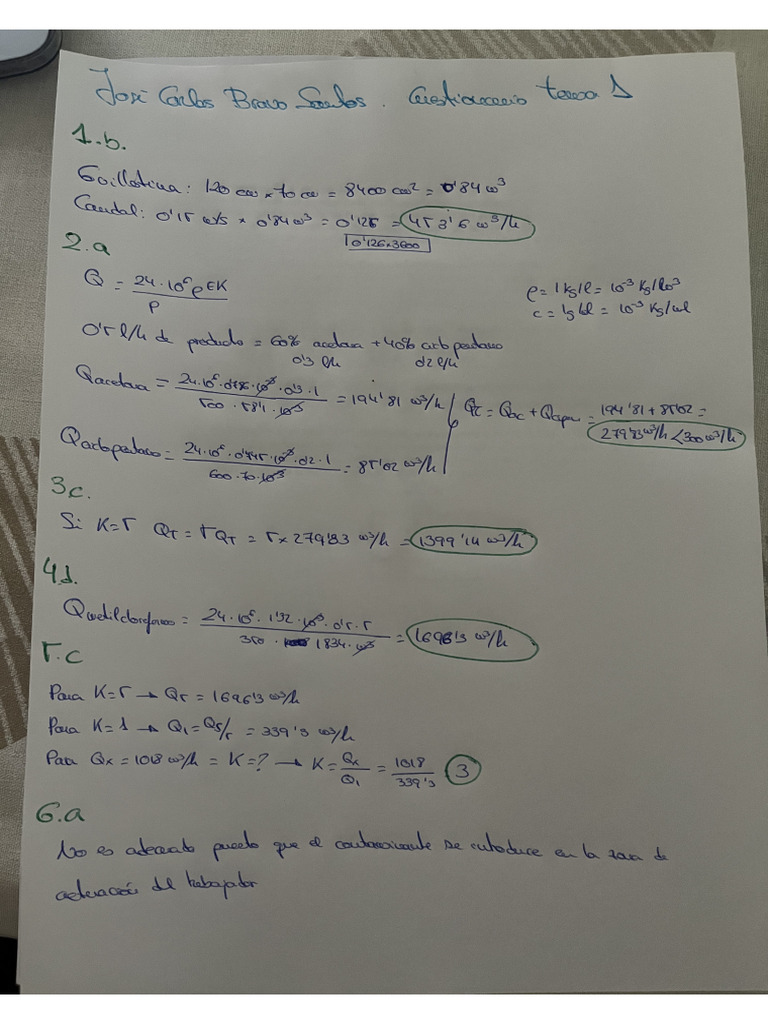 José Carlos Bravo Santos. Cuestionario tema 1
1.b.
Guillotina: 120 cm × 70 cm = 8400 cm² = 0'84 m³
Caudal: 0'15 m/s × 0'84 m³ = 0'126 = 453'6 m³/h
0'126×3600
2.a
Q = 24·10⁶ρEK / P
ρ = 1 kg/l = 10⁻³ kg/m³
c = 1g/l = 10⁻³ kg/ml
0'5 l/h de producto = 60% acetona + 40%
0'3 l/h 0'2 l/h
Qacetona = 24·10⁶·0'786·10⁻³·0'3·1 / 500·58'1·10⁻³ = 194'81 m³/h
QT = Qac + = 194'81 + 85'02 =
279'83 m³/h < 300 m³/h
= 24·10⁶·0'745·10⁻³·0'2·1 / 600·70·10⁻³ = 85'02 m³/h
3c.
Si K=5 QT = 5QT = 5×279'83 m³/h = 1399'14 m³/h
4d.
Qmetilcloroformo = 24·10⁶·1'32·10⁻³·0'5·5 / 350·1834·10⁻³ = 1696'3 m³/h
5.c
Para K=5 → Q5 = 1696'3 m³/h
Para K=1 → Q1 = Q5/5 = 339'3 m³/h
Para Qx = 1018 m³/h = K=? → K = Qx/Q1 = 1018/339'3 3
6.a
No es adecuado puesto que el contaminante se introduce en la zona de
actuación del trabajador